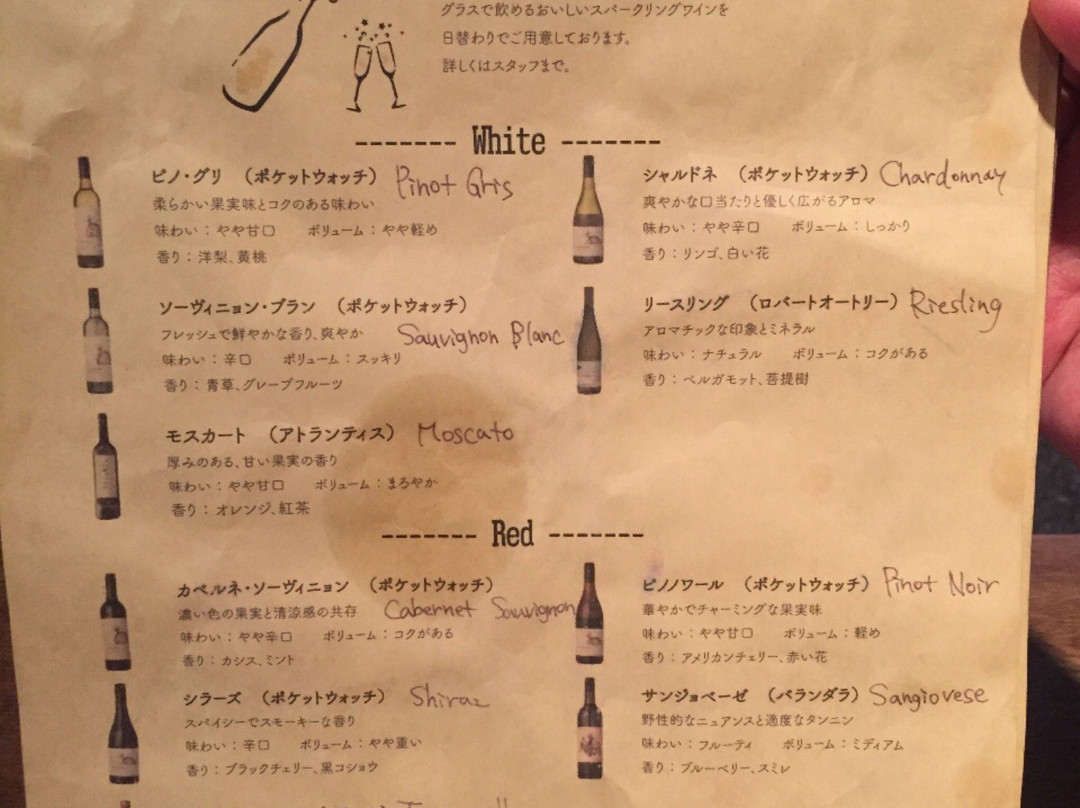 グラスで飲めるおいしいスパークリングワインを
日替わりでご用意しております。
詳しくはスタッフまで。
------- White -------
ピノ・グリ （ポケットウォッチ） Pinot Gris
柔らかい果実味とコクのある味わい
味わい：やや甘口 ボリューム：やや軽め
香り：洋梨、黄桃
シャルドネ （ポケットウォッチ） Chardonnay
爽やかな口当たりと優しく広がるアロマ
味わい：やや辛口 ボリューム：しっかり
香り：リンゴ、白い花
ソーヴィニョン・ブラン （ポケットウォッチ）
フレッシュで鮮やかな香り、爽やか Sauvignon Blanc
味わい：辛口 ボリューム：スッキリ
香り：青草、グレープフルーツ
リースリング （ロバートオートリー） Riesling
アロマチックな印象とミネラル
味わい：ナチュラル ボリューム：コクがある
香り：ベルガモット、菩提樹
モスカート （アトランティス） Moscato
厚みのある、甘い果実の香り
味わい：やや甘口 ボリューム：まろやか
香り：オレンジ、紅茶
------- Red -------
カベルネ・ソーヴィニョン （ポケットウォッチ）
濃い色の果実と清涼感の共存 Cabernet Sauvignon
味わい：やや辛口 ボリューム：コクがある
香り：カシス、ミント
ピノノワール （ポケットウォッチ） Pinot Noir
華やかでチャーミングな果実味
味わい：やや甘口 ボリューム：軽め
香り：アメリカンチェリー、赤い花
シラーズ （ポケットウォッチ） Shiraz
スパイシーでスモーキーな香り
味わい：辛口 ボリューム：やや重い
香り：ブラックチェリー、黒コショウ
サンジョベーゼ （バランダラ） Sangiovese
野性的なニュアンスと適度なタンニン
味わい：フルーティ ボリューム：ミディアム
香り：ブルーベリー、スミレ